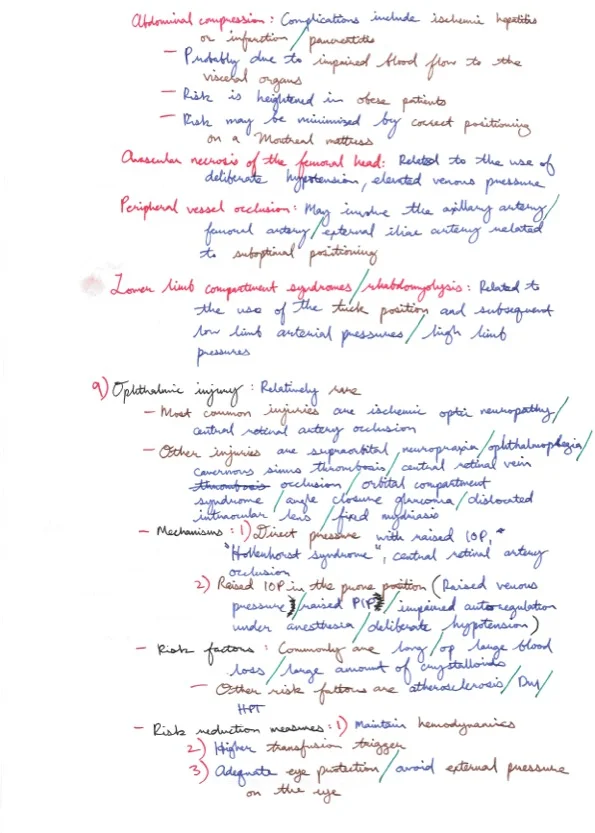 Abdominal compression: Complications include ischemic hepatitis
or infarction/pancreatitis
- Probably due to impaired blood flow to the
visceral organs
- Risk is heightened in obese patients
- Risk may be minimised by correct positioning
on a Montreal mattress
Avascular necrosis of the femoral head: Related to the use of
deliberate hypotension, elevated venous pressure
Peripheral vessel occlusion: May involve the axillary artery/
femoral artery/external iliac artery related
to suboptimal positioning
Lower limb compartment syndromes/rhabdomyolysis: Related to
the use of the tuck position and subsequent
low limb arterial pressures/high limb
pressures
9) Ophthalmic injury: Relatively rare
- Most common injuries are ischemic optic neuropathy/
central retinal artery occlusion
- Other injuries are supraorbital neuropraxia/ophthalmoplegia/
cavernous sinus thrombosis/central retinal vein
thrombosis occlusion/orbital compartment
syndrome/angle closure glaucoma/dislocated
intraocular lens/fixed mydriasis
- Mechanisms: 1) Direct pressure with raised IOP,
"Hollenhorst syndrome", central retinal artery
occlusion
2) Raised IOP in the prone position (Raised venous
pressure/raised PIP/impaired autoregulation
under anesthesia/deliberate hypotension)
- Risk factors: Commonly are long/op large blood
loss/large amount of crystalloids
- Other risk factors are atherosclerosis/DM/
HPT
- Risk reduction measures: 1) Maintain hemodynamics
2) Higher transfusion trigger
3) Adequate eye protection/avoid external pressure
on the eye